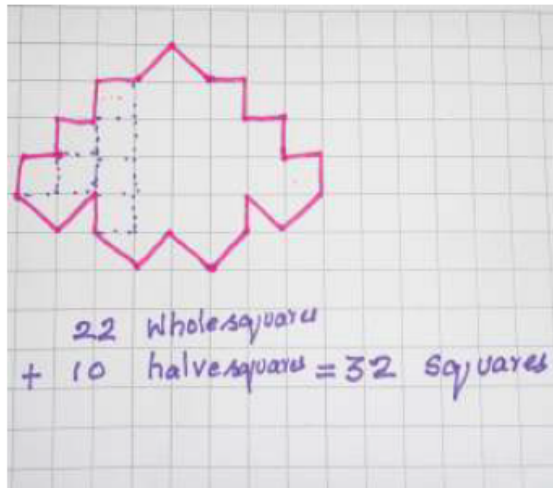 22 wholesquares
+ 10 halvesquares = 32 squares